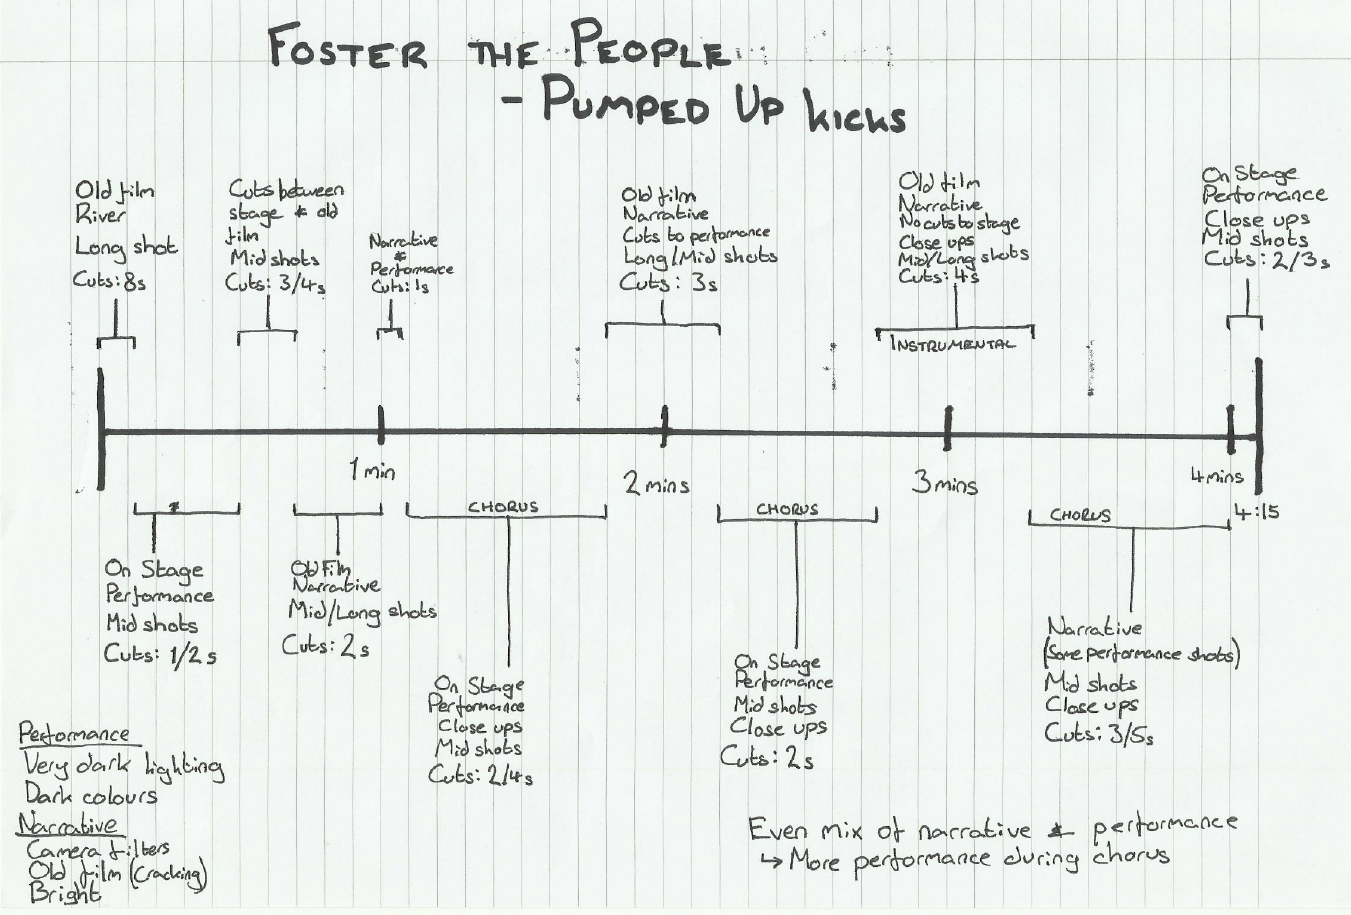 FOSTER THE PEOPLE
- PUMPED UP KICKS
Old film
River
Long shot
Cuts: 8s
Cuts between
stage & old
film
Mid shots
Cuts: 3/4s
Narrative
&
Performace
Cuts: 1s
Old film
Narrative
Cuts to performance
Long/Mid shots
Cuts: 3s
Old film
Narrative
No cuts to stage
Close ups
Mid/Long shots
Cuts: 4s
INSTRUMENTAL
On Stage
Performance
Close ups
Mid shots
Cuts: 2/3s
1 min
2 mins
3 mins
4 mins
4:15
On Stage
Performance
Mid shots
Cuts: 1/2s
Old Film
Narrative
Mid/Long shots
Cuts: 2s
CHORUS
On Stage
Performance
Close ups
Mid shots
Cuts: 2/4s
CHORUS
On Stage
Performance
Mid shots
Close ups
Cuts: 2s
CHORUS
Narrative
(Some performance shots)
Mid shots
Close ups
Cuts: 3/5s
Performance
Very dark lighting
Dark colours
Narrative
Camera filters
Old film (cracking)
Bright
Even mix of narrative & performance
↳ More performance during chorus